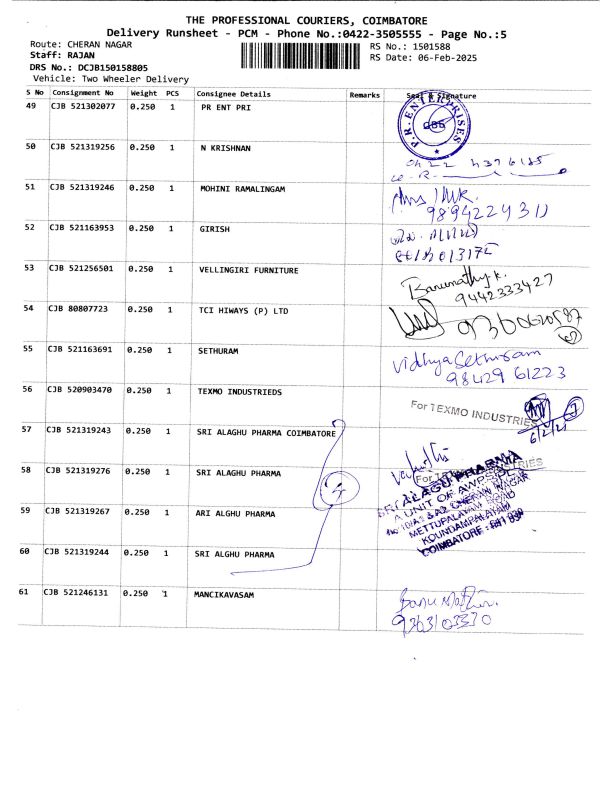 THE PROFESSIONAL COURIERS, COIMBATORE
Delivery Runsheet - PCM - Phone No.:0422-3505555 - Page No.:5
Route: CHERAN NAGAR
RS No.: 1501588
Staff: RAJAN
RS Date: 06-Feb-2025
DRS No.: DCJB150158805
Vehicle: Two Wheeler Delivery
S No Consignment No Weight PCS Consignee Details Remarks Seal & Signature
49 CJB 521302077 0.250 1 PR ENT PRI
P.R. ENTERPRISES
50 CJB 521319256 0.250 1 N KRISHNAN
51 CJB 521319246 0.250 1 MOHINI RAMALINGAM
9894224311
52 CJB 521163953 0.250 1 GIRISH
53 CJB 521256501 0.250 1 VELLINGIRI FURNITURE
Banumathy K.
9442333427
54 CJB 80807723 0.250 1 TCI HIWAYS (P) LTD
55 CJB 521163691 0.250 1 SETHURAM
Vidhya Sethuram
98429 61223
56 CJB 520903470 0.250 1 TEXMO INDUSTRIEDS
For TEXMO INDUSTRIES
57 CJB 521319243 0.250 1 SRI ALAGHU PHARMA COIMBATORE
58 CJB 521319276 0.250 1 SRI ALAGHU PHARMA
SRI ALAGU PHARMA
59 CJB 521319267 0.250 1 ARI ALGHU PHARMA
METTUPALAYAM ROAD
KOUNDAMPALAYAM
60 CJB 521319244 0.250 1 SRI ALGHU PHARMA
61 CJB 521246131 0.250 1 MANCIKAVASAM
9363103330